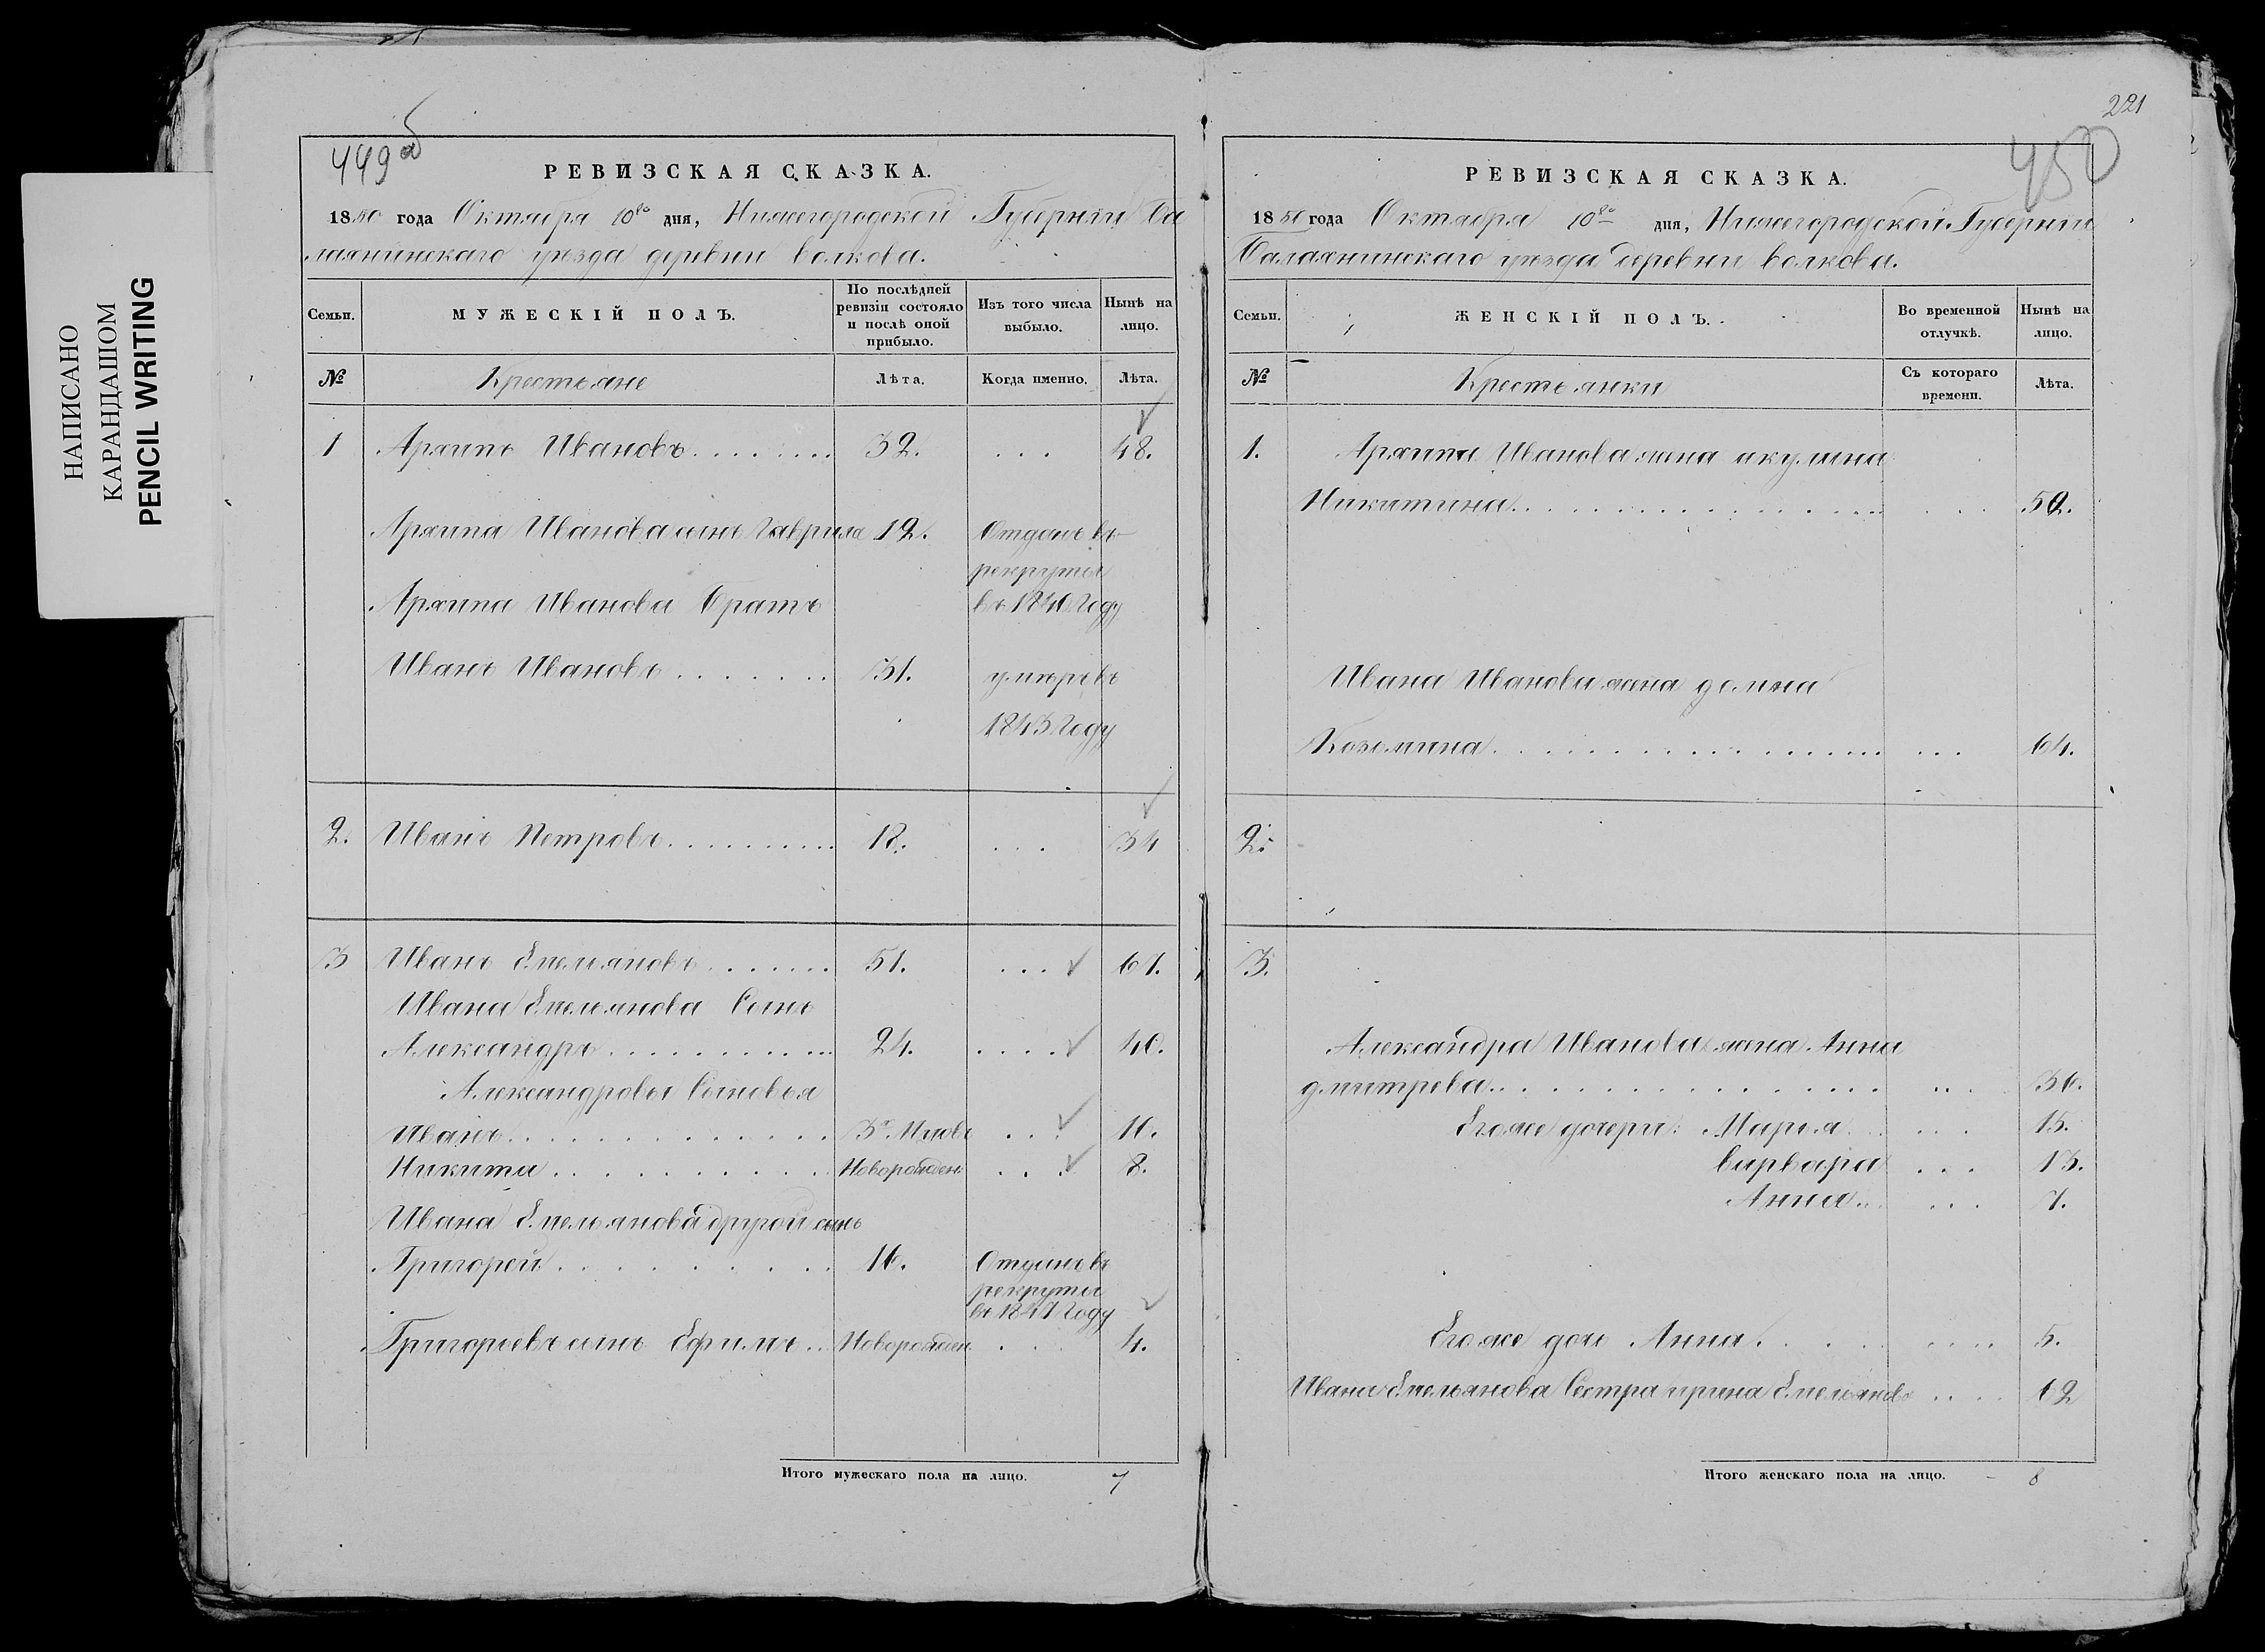 НАПИСАНО
КАРАНДАШОМ
PENCIL WRITING
449 об
РЕВИЗСКАЯ СКАЗКА.
1850 года Октября 10го дня, Нижегородской Губернии Ба
лахнинскаго уезда деревни Волкова.
Семьи. МУЖЕСКІЙ ПОЛЪ. По послѣдней ревизіи состояло и послѣ оной прибыло. Изъ того числа выбыло. Нынѣ на лицо.
№ Крестьяне Лѣта. Когда именно. Лѣта.
1 Архипъ Ивановъ 32. 48.
Архипа Иванова сынъ Гаврила 12. Отданъ въ
рекруты
Архипа Иванова Братъ въ 1840 Году
Иванъ Ивановъ 31. умеръ въ
1843 Году
2. Иванъ Петровъ 18. 34
3 Иванъ Емельяновъ 51. 67.
Ивана Емельянова Сынъ
Александръ 24. 40.
Александровы Сыновья
Иванъ 3х Месов 16.
Никита Новорожден 8.
Ивана Емельянова другой сынъ
Григорей 16. Отданъ въ
рекруты
въ 1847 Году
Григорьевъ сынъ Ефимъ Новорожден 4.
Итого мужескаго пола на лицо. 7
221
450
РЕВИЗСКАЯ СКАЗКА.
1850 года Октября 10го дня, Нижегородской Губернии
Балахнинскаго уезда деревни Волкова.
Семьи. ЖЕНСКІЙ ПОЛЪ. Во временной отлучкѣ. Нынѣ на лицо.
№ Крестьянки Съ котораго времени. Лѣта.
1. Архипа Иванова жена акулина
Никитина 52.
Ивана Иванова жена домна
Козьмина 64.
2.
3.
Александра Иванова жена Анна
дмитрева 36.
Егоже дочери: Марья 15.
варвара 13.
Анна 7.
Егоже дочь Анна 5.
Ивана Емельянова Сестра ирина Емельянова 62
Итого женскаго пола на лицо. 8